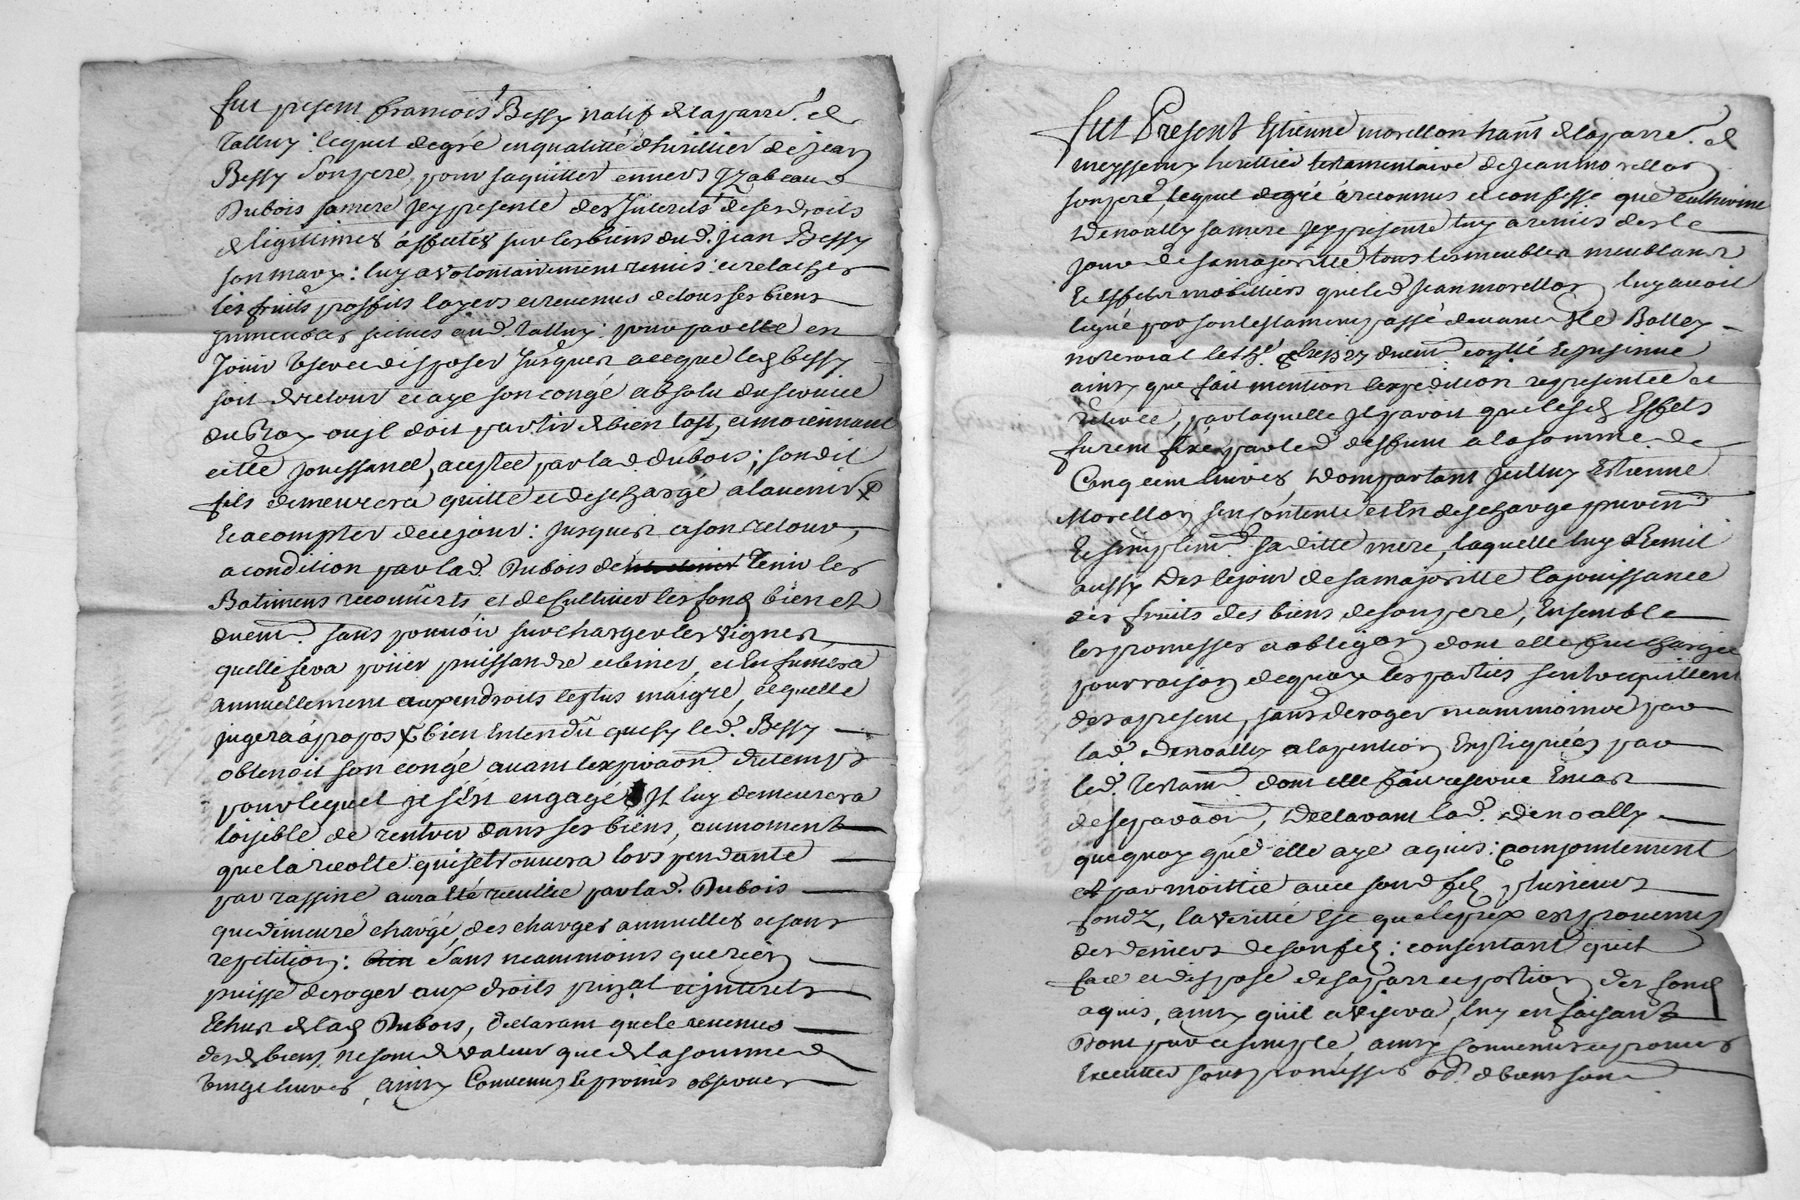 fut present francois Bessy natif de la parre. de
Talluy: lequel de gré en qualitté d'hérittier de jean
Bessy son pere, pour saquitter envers Izabeau
Dubois sa mere jcy presente des Interets de ses droits
& légittimes affectés sur les biens dud. jean Bessy
son mary: luy a volontairement remis et relaché
les fruits proffits loyers et revenus de tous ses biens
jmmeubles scitués aud. Talluy: pour par elle en
Jouir user et disposer Jusques a ce que led. bessy
soit de retour et aye son congé absolu du service
du Roy ou jl doit partir de bien tost, et moiennant
cette jouissance, aceptée par lad. dubois; sondit
fils demeurera quitte et deschargé a lavenir
Et a compter de ce jour: Jusques a son retour,
a condition par lad. Dubois de tenir les
Batimens recouverts et de Cultiver les fond bien et
duem. sans pouvoir surcharger les vignes
quelle fera poüer puissandre et biner et En fumera
annuellement aux endroits les plus maigre, et quelle
jugera àpropos bien Entendu que sy led. Bessy
obtenoit son congé avant lexpiraon. du temps
pour lequel jl sest engagé Jl luy demeurera
loisible de rentrer dans ses biens, au moment
que la recolte qui se trouvera lors pendante
par rassine aura été receullie par lad. Dubois
que demeure chargé, des charges annuelles et sans
repetition: sans neanmoins que rien
puisse deroger aux droits prinpal et jnterets
Echus de lad. Dubois, declarant que le revenus
desd. biens ne sont de valeur que de la somme de
vingt livres, ainsy Convenu et promis observer
fut Present Estienne morellon hant. de la parre. de
meyssemy herittier testamentaire de Jean morellon
son pere, lequel de gré à reconnus et confessé que catherine
Denoally sa mere jcy presente luy a remis des le
jour de sa majoritté tous les meubles meublans
Et Effets mobilliers que led. Jean morellon luy avoit
legué par son testament passé devant Me Balley
note roial le bre 1727 duem controllé et jnsinué
ainsy que fait mention lexpedition representée et
retirée, par laquelle jl paroit que lesd. Effets
furent fixé par led. deffunt a la somme de
Cinq cent livres, Dont partant jcelluy Estienne
Morellon sen contente et En descharge purem.
Et simplem. sa ditte mere, laquelle luy Remit
aussy Des le jour de sa majoritté la jouissance
des fruits des biens de son pere, Ensemble
les promesses et obligaon dont elle fut chargée
pour raison de quoy les parties sentrequittent
des apresent, sans deroger neanmoins par
lad. denoally a la pention Expliquées par
led. Testam. dont elle fait reserve En cas
de separaon, Declarant lad. denoally
que quoy que elle aye aquis: conjointement
et par moittié avec sond. fils plusieurs
fondz, la verité Est que le prix est provenus
des deniers de son fils: consentant quil
face et dispose de sa part et portion des fond
aquis, ainsy quil avisera, luy en faisant
Dont pur et simple, ainsy convenus et promis
Executter sous promesses od. de biens soum